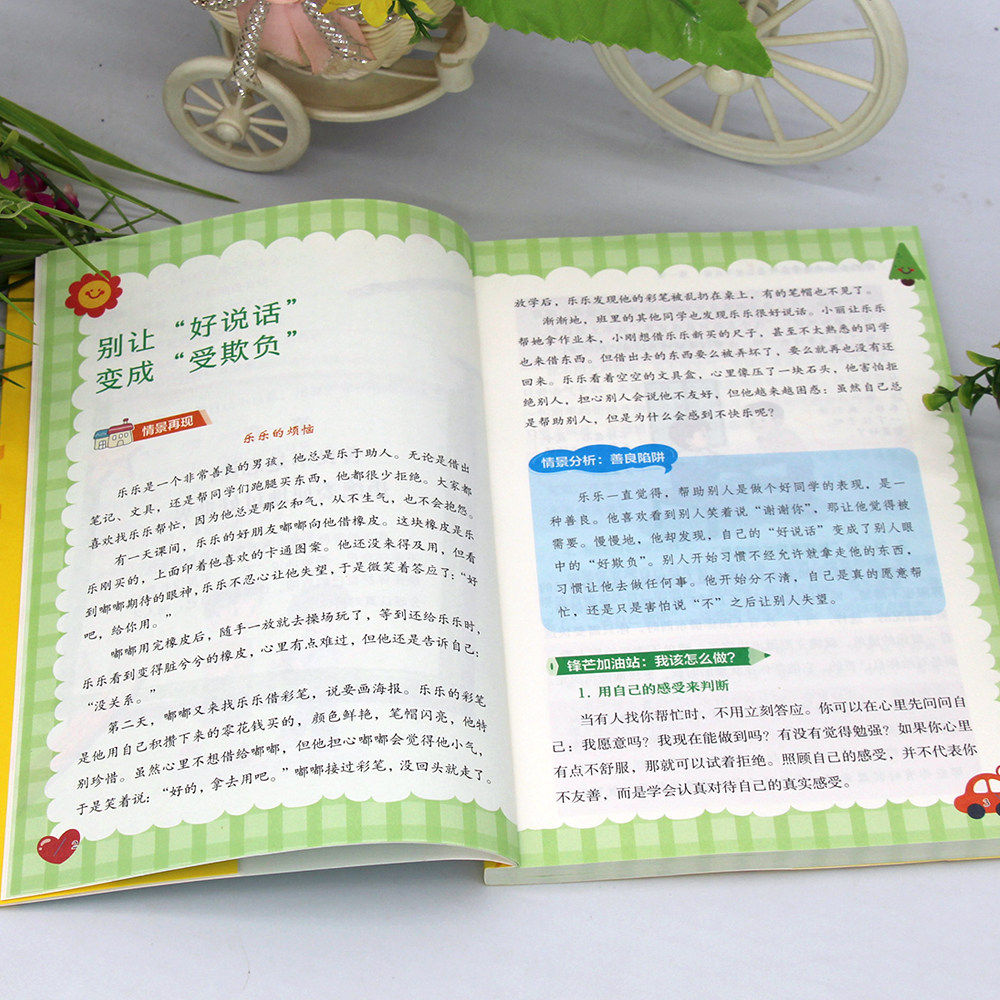 别让“好说话”
变成“受欺负”
情景再现
乐乐的烦恼
乐乐是一个非常善良的男孩，他总是乐于助人。无论是借出
笔记、文具，还是帮同学们跑腿买东西，他都很少拒绝。大家都
喜欢找乐乐帮忙，因为他总是那么和气，从不生气，也不会抱怨。
有一天课间，乐乐的好朋友嘟嘟向他借橡皮。这块橡皮是乐
乐刚买的，上面印着他喜欢的卡通图案。他还没来得及用，但看
到嘟嘟期待的眼神，乐乐不忍心让他失望，于是微笑着答应了：“好
吧，给你用。”
嘟嘟用完橡皮后，随手一放就去操场玩了，等到还给乐乐时，
乐乐看到变得脏兮兮的橡皮，心里有点难过，但他还是告诉自己：
“没关系。”
第二天，嘟嘟又来找乐乐借彩笔，说要画海报。乐乐的彩笔
是他用自己积攒下来的零花钱买的，颜色鲜艳，笔帽闪亮，他特
别珍惜。虽然心里不想借给嘟嘟，但他担心嘟嘟会觉得他小气，
于是笑着说：“好的，拿去用吧。”嘟嘟接过彩笔，没回头就走了。
2
放学后，乐乐发现他的彩笔被乱扔在桌上，有的笔帽也不见了。
渐渐地，班里的其他同学也发现乐乐很好说话。小丽让乐乐
帮她拿作业本，小刚想借乐乐新买的尺子，甚至不太熟悉的同学
也来借东西。但借出去的东西要么被弄坏了，要么就再也没有还
回来。乐乐看着空空的文具盒，心里像压了一块石头，他害怕拒
绝别人，担心别人会说他不友好，但他越来越困惑：虽然自己总
是帮助别人，但是为什么会感到不快乐呢？
情景分析：善良陷阱
乐乐一直觉得，帮助别人是做个好同学的表现，是一
种善良。他喜欢看到别人笑着说“谢谢你”，那让他觉得被
需要。慢慢地，他却发现，自己的“好说话”变成了别人眼
中的“好欺负”。别人开始习惯不经允许就拿走他的东西，
习惯让他去做任何事。他开始分不清，自己是真的愿意帮
忙，还是只是害怕说“不”之后让别人失望。
锋芒加油站：我该怎么做？
1. 用自己的感受来判断
当有人找你帮忙时，不用立刻答应。你可以在心里先问问自
己：我愿意吗？我现在能做到吗？有没有觉得勉强？如果你心里
有点不舒服，那就可以试着拒绝。照顾自己的感受，并不代表你
不友善，而是学会认真对待自己的真实感受。
3